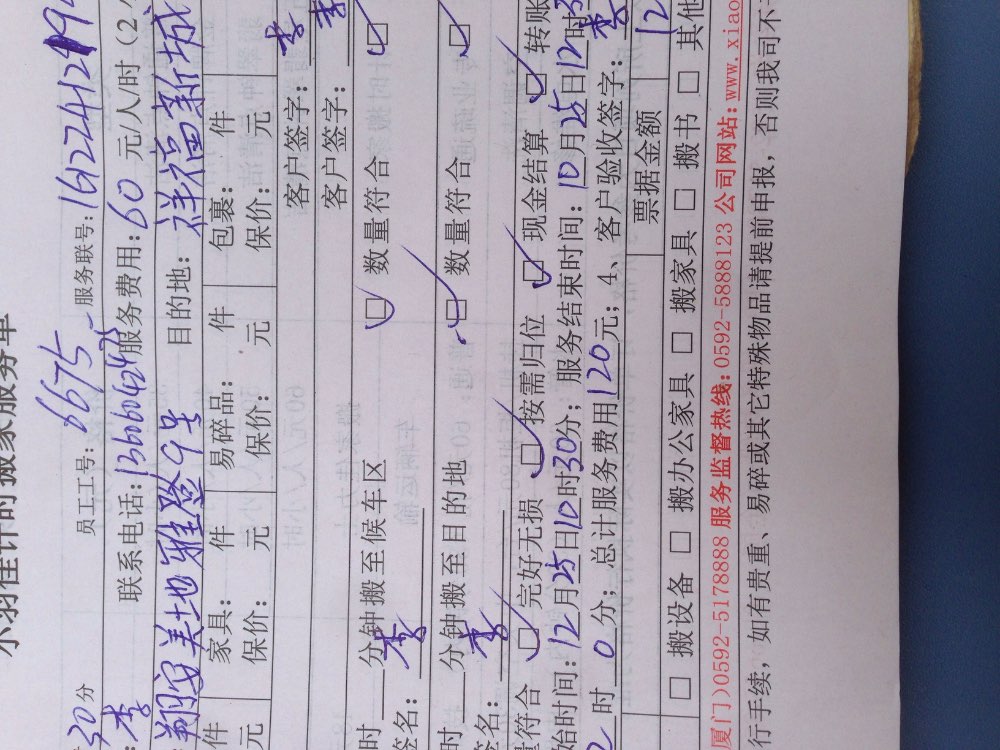 小羽佳计时搬家服务单
30分 员工工号: 6675 服务联号: 
李 联系电话: 服务费用: 60 元/人/时 (2
翔安美地雅登9号 目的地: 祥福新城
件 家具: 件 易碎品: 件 包裹: 件
元 保价: 元 保价: 元 保价: 元
客户签字: 李
客户签字: 李
时 分钟搬至候车区 数量符合
签名: 李
分钟搬至目的地 数量符合
签名: 李
量符合 完好无损 按需归位 现金结算 转账
始时间: 12月25日10时30分; 服务结束时间: 10月25日12时3
2时0分; 总计服务费用120元; 4、客户验收签字: 李
票据金额 12
搬设备 搬办公家具 搬家具 搬书 其他
厦门)0592-5178888 服务监督热线:0592-5888123 公司网站:www.xiao
行手续, 如有贵重、易碎或其它特殊物品请提前申报, 否则我司不